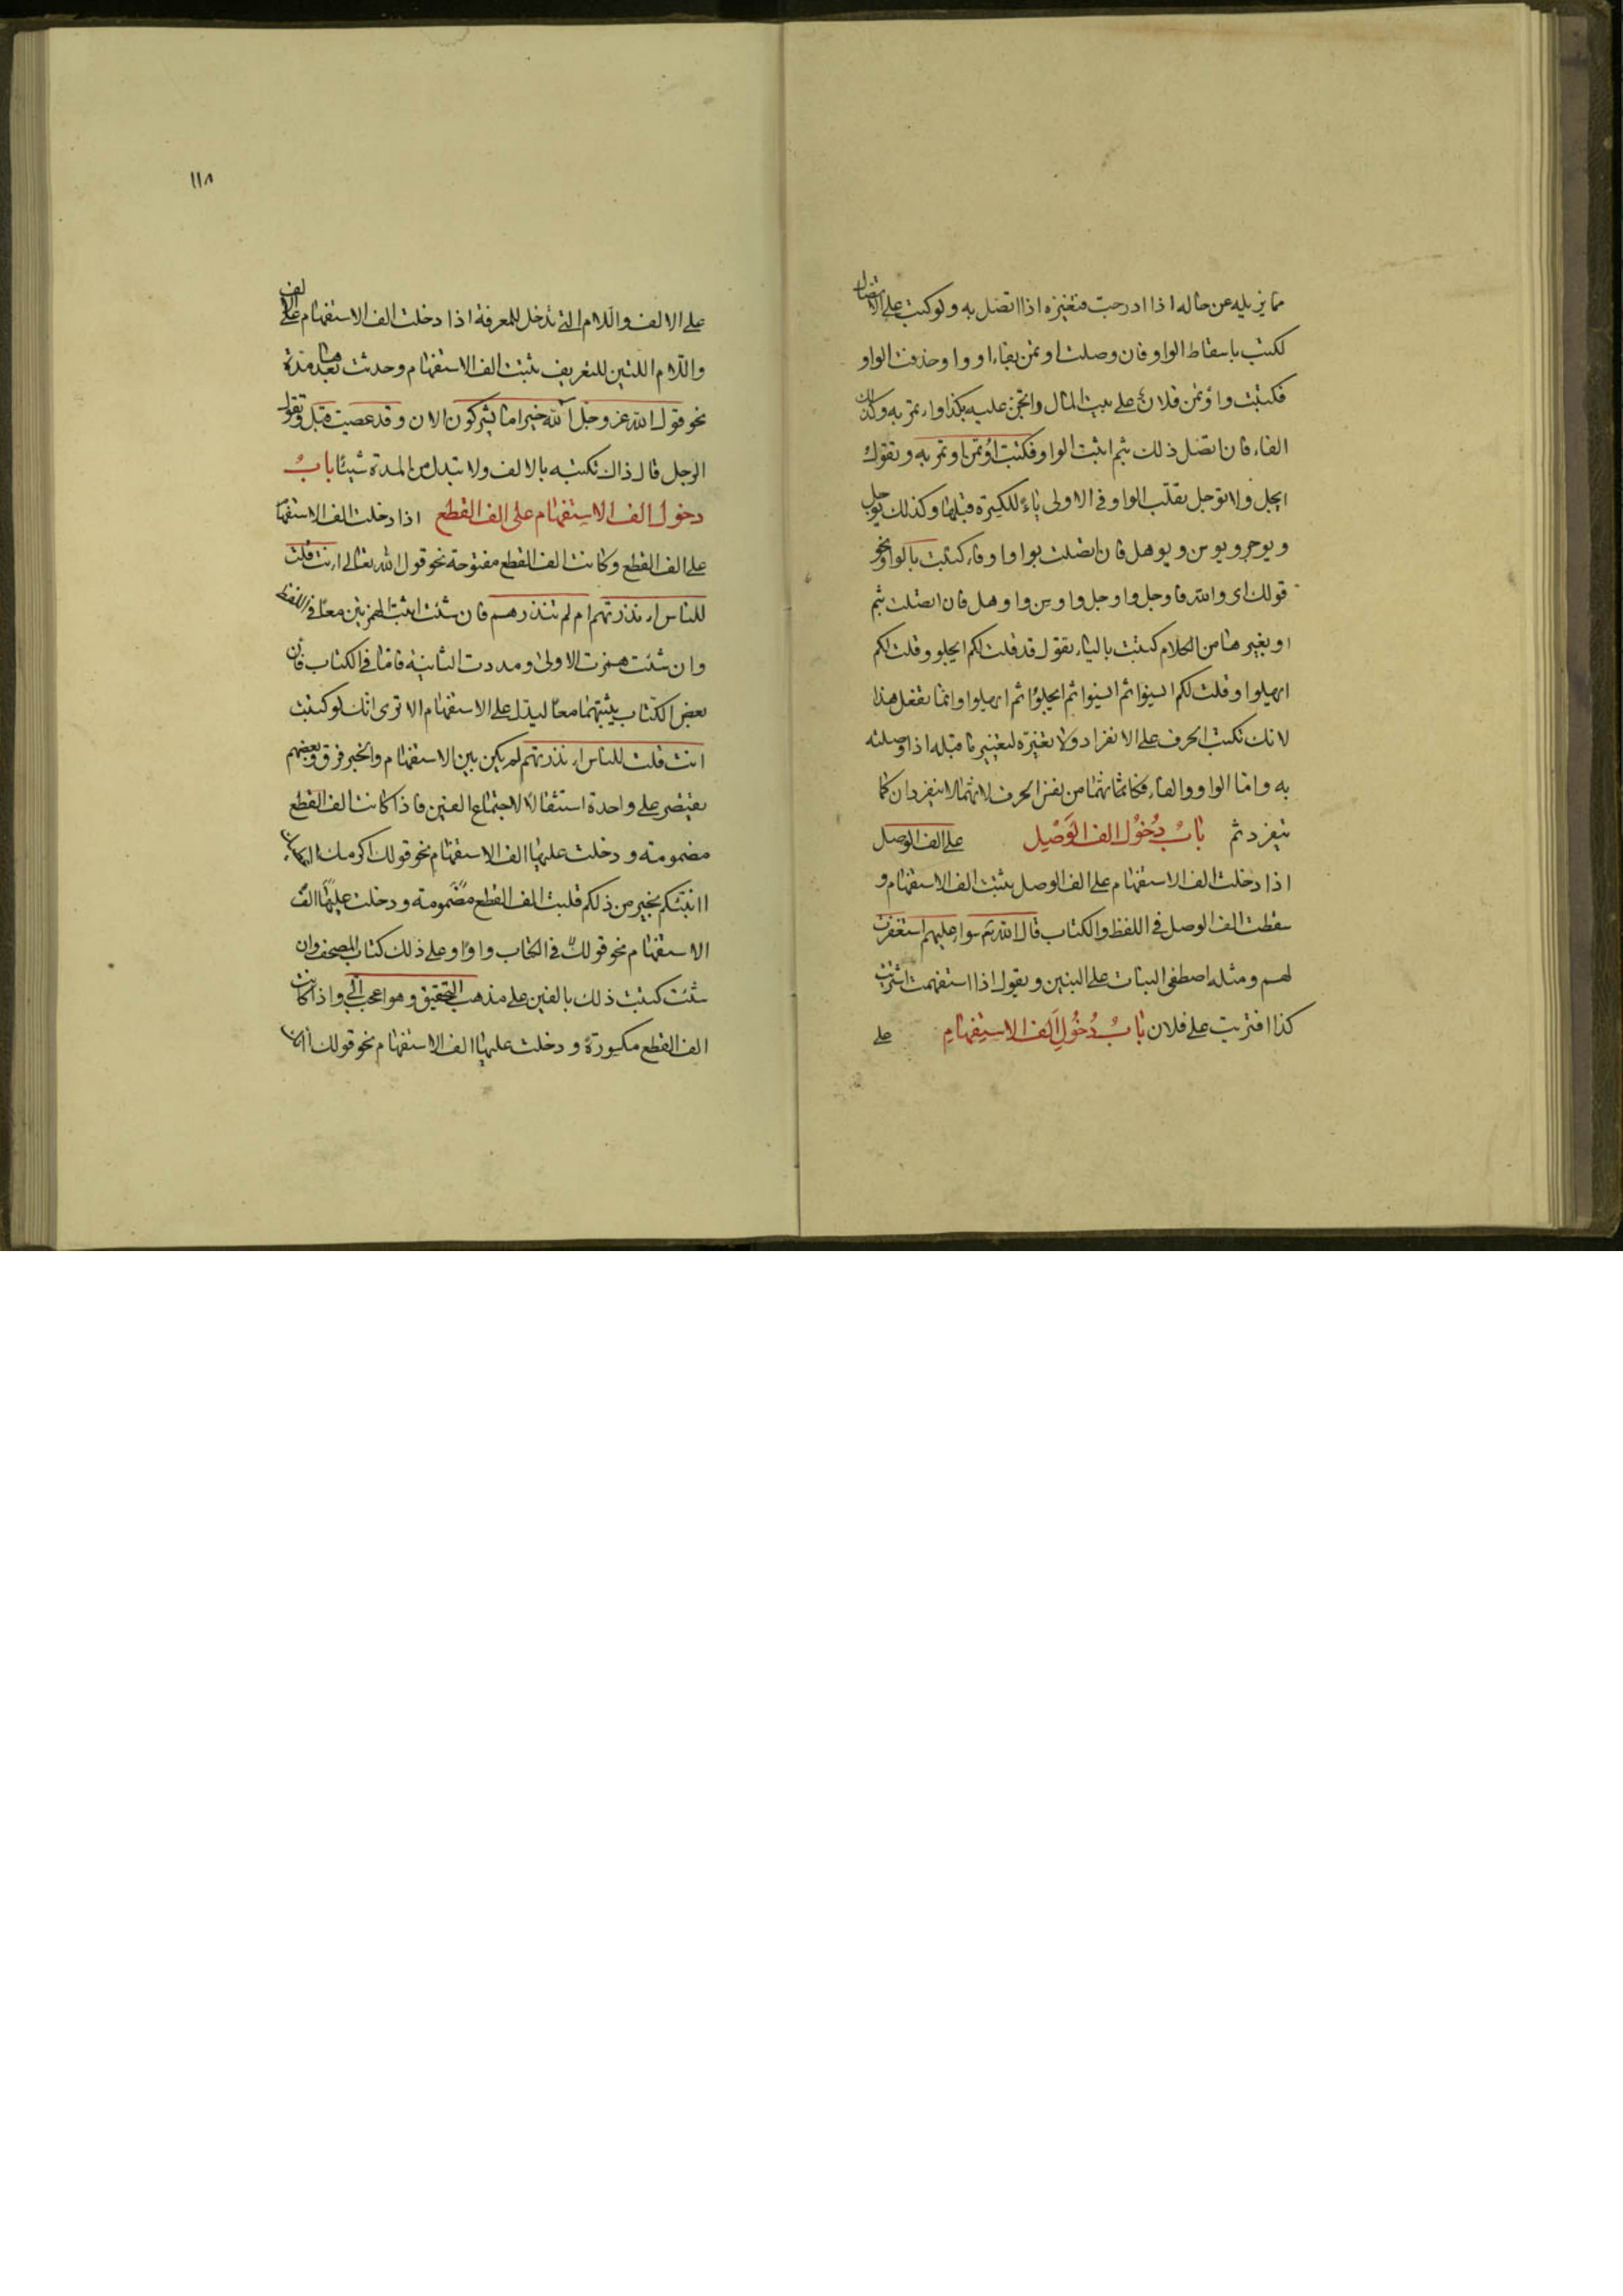 مما يزيله عن حاله اذا ادرجت فتغيره اذا اتصل به ولو كتبت على الاتصال
لكتبت باسقاط الواو فان وصلت اوتمن بفاء او واو حذفت الواو
فكتبت واؤتمن فلان على بيت المال واتجن عليه بكذا واءتمر به وكذلك
الفاء فان اتصل ذلك بثم اثبت الواو فكتبت اؤتمن اوتمر به وتقول
ايجل ولا توجل بقلب الواو في الاولى ياء للكسرة قبلها وكذلك يوجل
ويوحر ويوسن ويوهل فان اتصلت بواو او فاء كتبت بالواو نحو
قولك اى والله فاوجل واوجل واوسن واوهل فان اتصلت بثم
او بغيرها من الكلام كتبت بالياء تقول قد قلت لكم ايجلو وقلت لكم
ايهلوا وقلت لكم ايسنوا ثم ايسنوا ثم ايجلوا ثم ايهلوا وانما تفعل هذا
لانك تكتب الحرف على الانفراد ولا تغيره لتغيير ما قبله اذا وصلته
به واما الواو والفاء فكانهما من نفس الحرف لانهما لا ينفردان كما
ينفرد ثم باب دخول الف الوصل على الف الوصل
اذا دخلت الف الاستفهام على الف الوصل يثبت الف الاستفهام و
سقطت الف الوصل في اللفظ والكتاب قال الله تع سواء عليهم استغفرت
لهم ومثله اصطفى البنات على البنين وتقول اذا استفهمت اشتريت
كذا افتريت على فلان باب دخول الف الاستفهام على
١١٨
على الالف واللام التي تدخل للمعرفة اذا دخلت الف الاستفهام على الالف
واللام اللتين للتعريف يثبت الف الاستفهام وحدثت بعدها مدة
نحو قول الله عز وجل آلله خير اما يشركون الان وقد عصيت قبل وتقول
الرجل قال ذاك تكتبه بالالف ولا تبدل من المدة شيئا باب
دخول الف الاستفهام على الف القطع اذا دخلت الف الاستفهام
على الف القطع وكانت الف القطع مفتوحة نحو قول الله تعالى اءنت قلت
للناس اءنذرتهم ام لم تنذرهم فان شئت اثبت الهمزتين معا في اللفظ
وان شئت همزت الاولى ومددت الثانية فاما في الكتاب فان
بعض الكتاب يثبتهما معا ليدل على الاستفهام الا ترى انك لو كتبت
انت قلت للناس اءنذرتهم لم يكن بين الاستفهام والخبر فرق وبعضهم
يقتصر على واحدة استثقالا لاجتماع الفين فاذا كانت الف القطع
مضمومة ودخلت عليها الف الاستفهام نحو قولك اكرمك
اانبئكم بخير من ذلكم قلبت الف القطع مضمومة ودخلت عليها الف
الاستفهام نحو قولك في الكتاب واوا وعلى ذلك كتاب المصحف وان
شئت كتبت ذلك بالفين على مذهب التحقيق وهو اعجب الي واذا كانت
الف القطع مكسورة ودخلت عليها الف الاستفهام نحو قولك